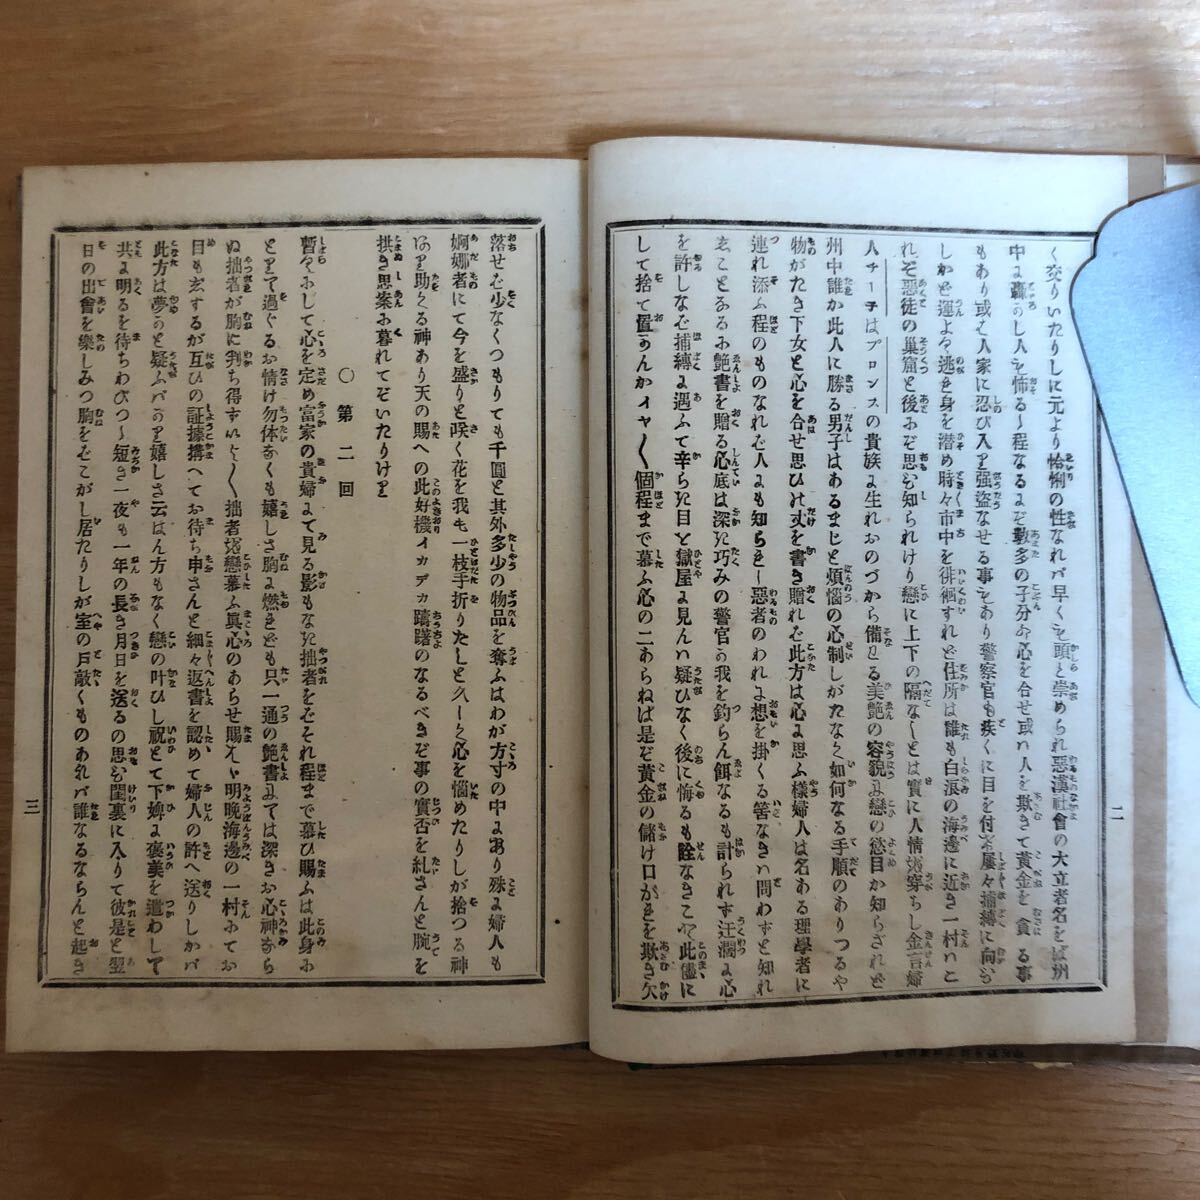 く交りいたりしに元より怜悧の性なれバ早くも頭と崇められ惡漢社會の大立者名をば州
中に轟かし人も怖るゝ程なるにぞ數多の子分共心を合せ或ハ人を欺きて黄金を貪る事
もあり或は人家に忍び入り强盗なせる事もあり警察官も疾くに目を付け屢々捕縛に向ひ
しかど運よく逃き身を潜め時々市中を徘徊すれど住所は誰も白浪の海邊に近き一村ハこ
れぞ惡徒の巢窟と後にぞ思ひ知られけり戀に上下の隔なしとは實に人情を穿ちし金言婦
人チーチはプロンスの貴族に生れおのづから備はる美艶の容貌に戀の慾目か知らざれど
州中誰か此人に勝る男子はあるまじと煩惱の心制しがたなく如何なる手順のありつるや
物がたき下女と心を合せ思ひの丈を書き贈れど此方は心に思ふ樣婦人は名ある理學者に
連れ添ふ程のものなれど人にも知らるゝ惡者のわれに想を掛くる筈なきハ問わずと知れ
ることなるに艶書を贈る心底は深き巧みの警官が我を釣らん餌なるも計られず汪濶に心
を許しなば捕縛に遇ふて辛らき目と獄屋に見んハ疑ひなく後に悔るも詮なきこと此儘に
して捨て置かんかイヤ〱個程まで慕ふ心の二あらねば是ぞ黄金の儲け口かれを欺き欠
二
落せば少なくつもりても千圓と其外多少の物品を奪ふはわが方寸の中にあり殊に婦人も
婀娜者にて今を盛りと咲く花を我も一枝手折りたしと久しく心を惱めたりしが捨つる神
あり助くる神あり天の賜への此好機イカデカ躊躇のなるべきぞ事の實否を糺さんと腕を
拱き思案に暮れてぞいたりけり
○第二回
暫くにして心を定め富家の貴婦にて見る影もなき拙者をばそれ程まで慕ひ賜ふは此身に
とりて過ぐるお情け勿体なくも嬉しさ胸に燃されども只一通の艶書にては深きお心神ならぬ
拙者が胸に判ち得ずいよ〱拙者を戀慕ふ眞心のあらせ賜はゞ明晩海邊の一村にてお
目もじするが互ひの証據搆へてお待ち申さんと細々返書を認めて婦人の許へ送りしかバ
此方は夢かと疑ふバかり嬉しさ云はん方もなく戀の叶ひし祝とて下婢に褒美を遣わして
共に明るを待ちわびつゝ短き一夜も一年の長き月日を送るの思ひ閨裏に入りて彼是と翌
日の出會を樂しみつ胸をばこがし居たりしが室の戸敲くものあれバ誰なるならんと起き
三